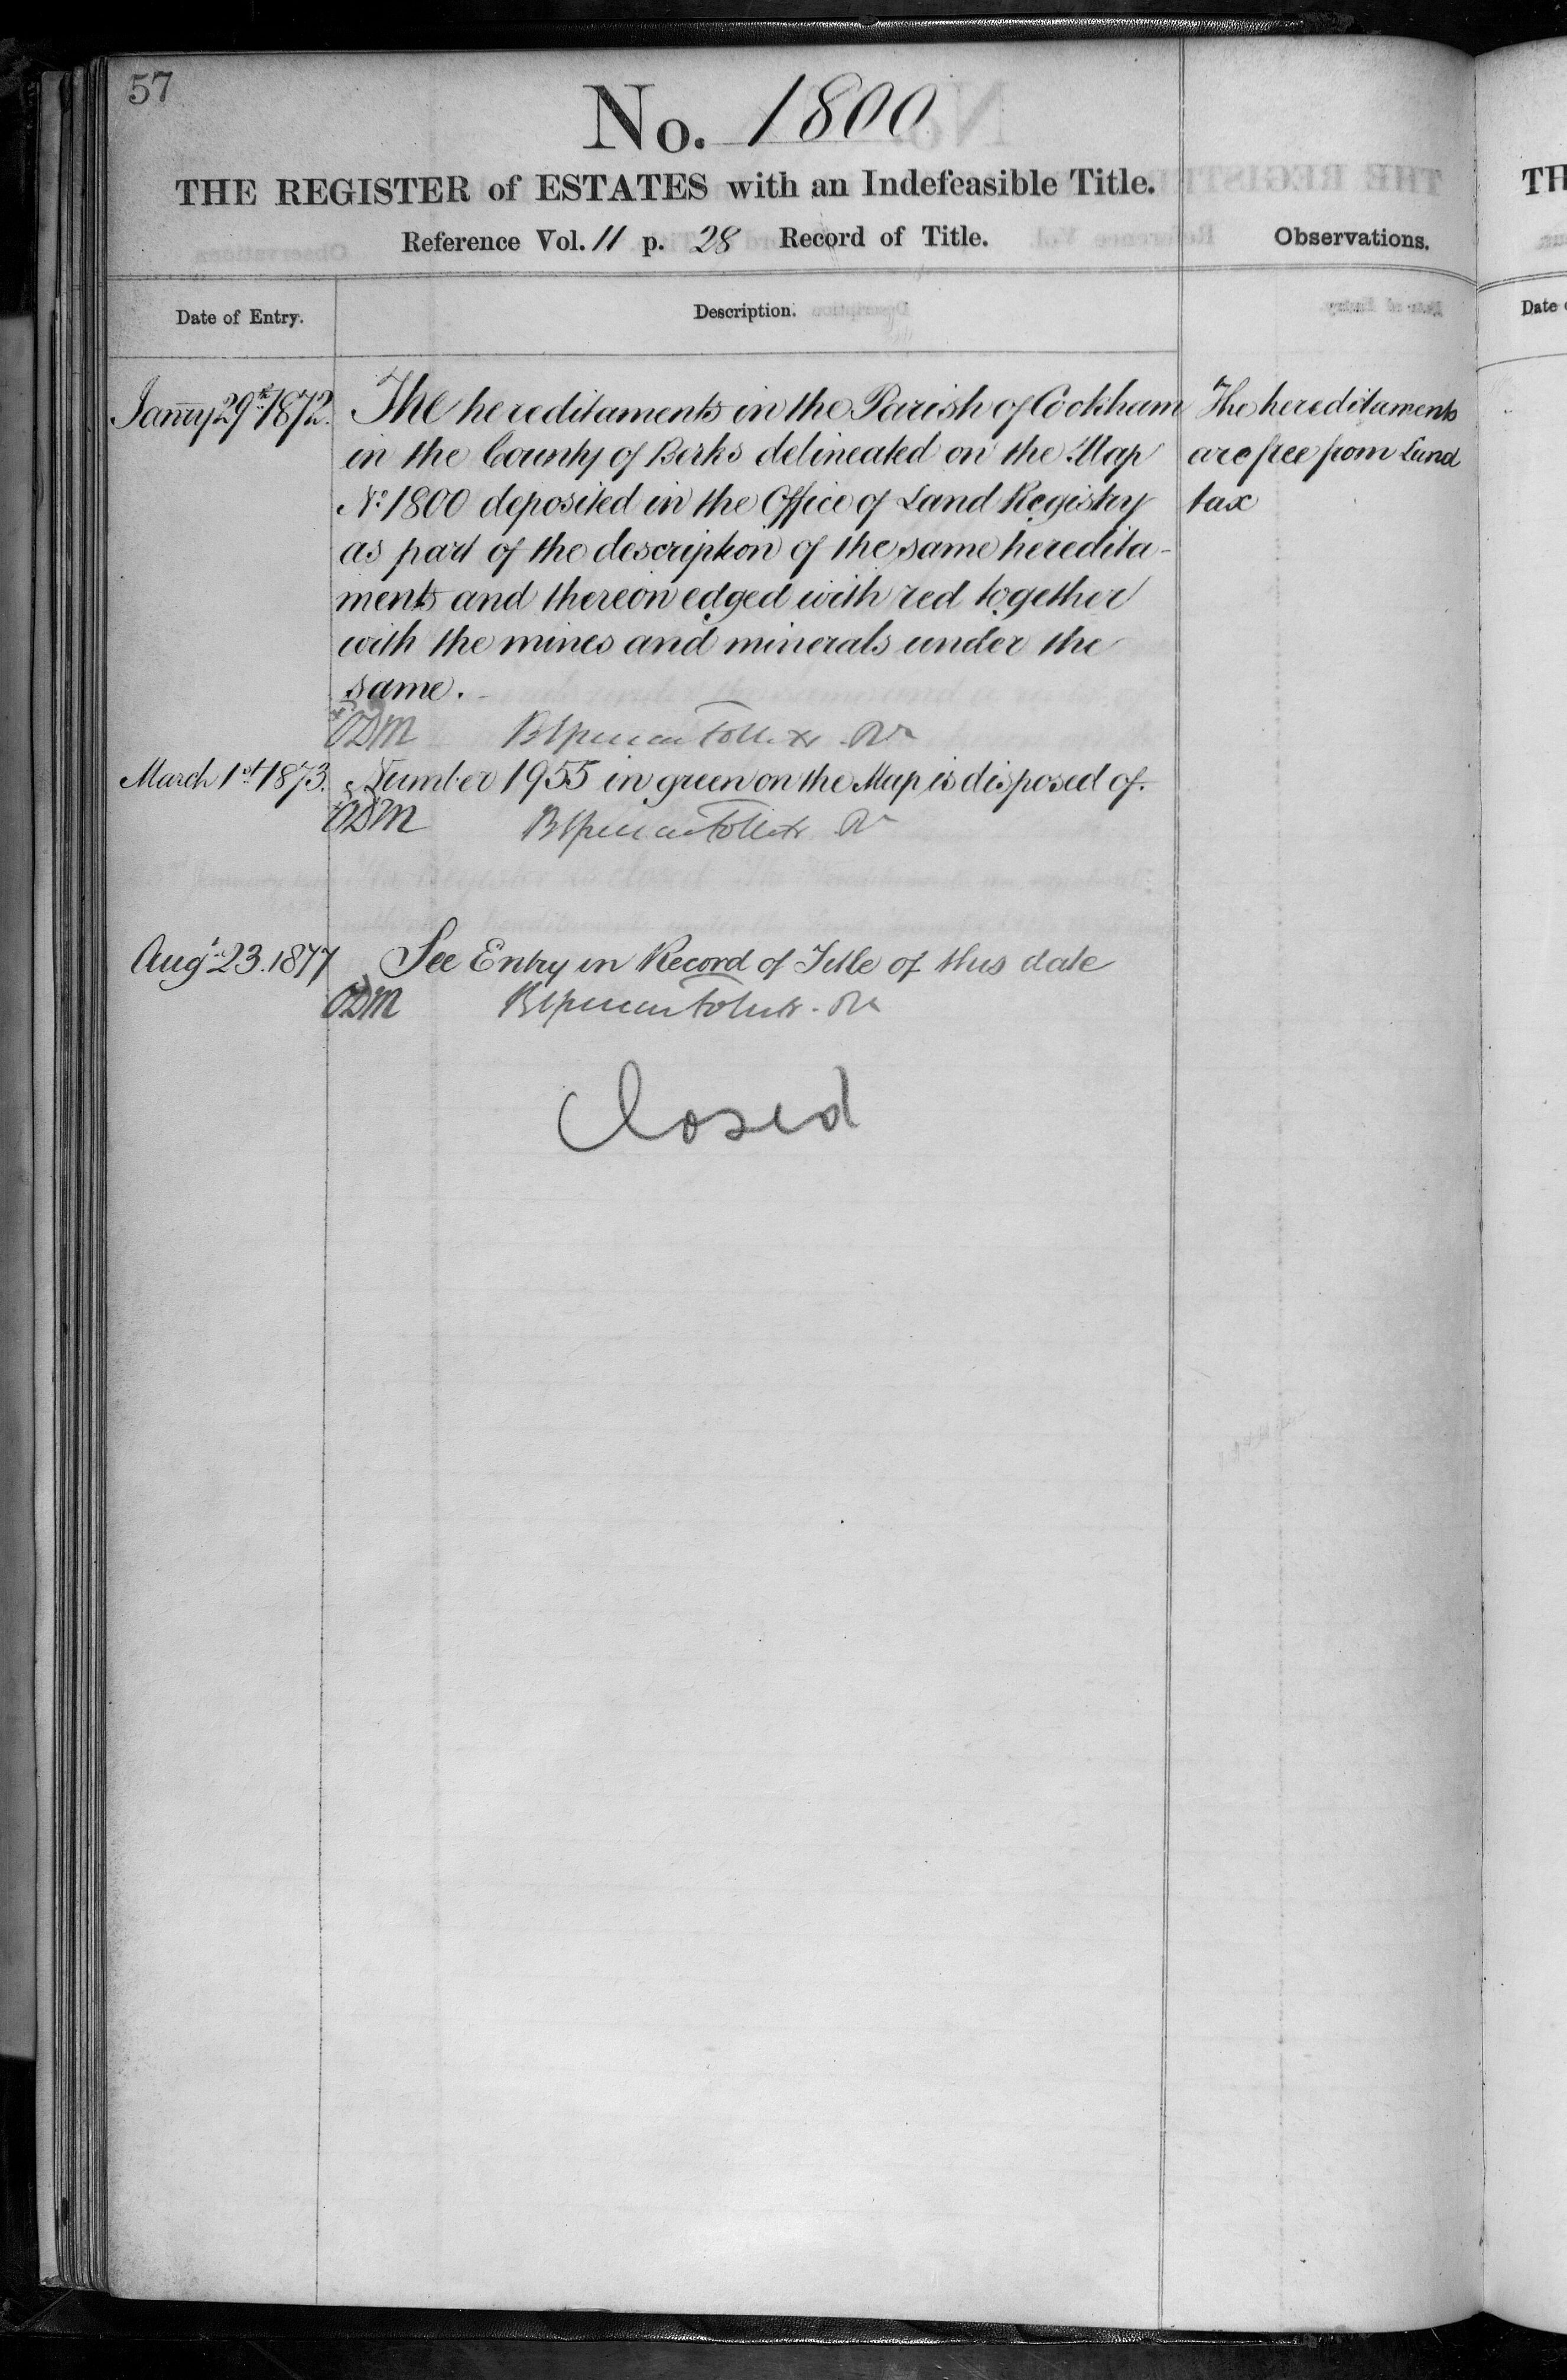 57
No. 1800
THE REGISTER of ESTATES with an Indefeasible Title.
Reference Vol. 11 p. 28 Record of Title.
Observations.
Date of Entry.
Description.
Janry 29th 1872.
The hereditaments in the Parish of Cookham
in the County of Berks delineated on the Map
No. 1800 deposited in the Office of Land Registry
as part of the description of the same heredita-
ments and thereon edged with red together
with the mines and minerals under the
same.
The hereditaments
are free from Land
tax
ODM
March 1st 1873.
Number 1955 in green on the Map is disposed of.
ODM
Augt. 23. 1877
See Entry in Record of Title of this date
ODM
Closed
TH
Date